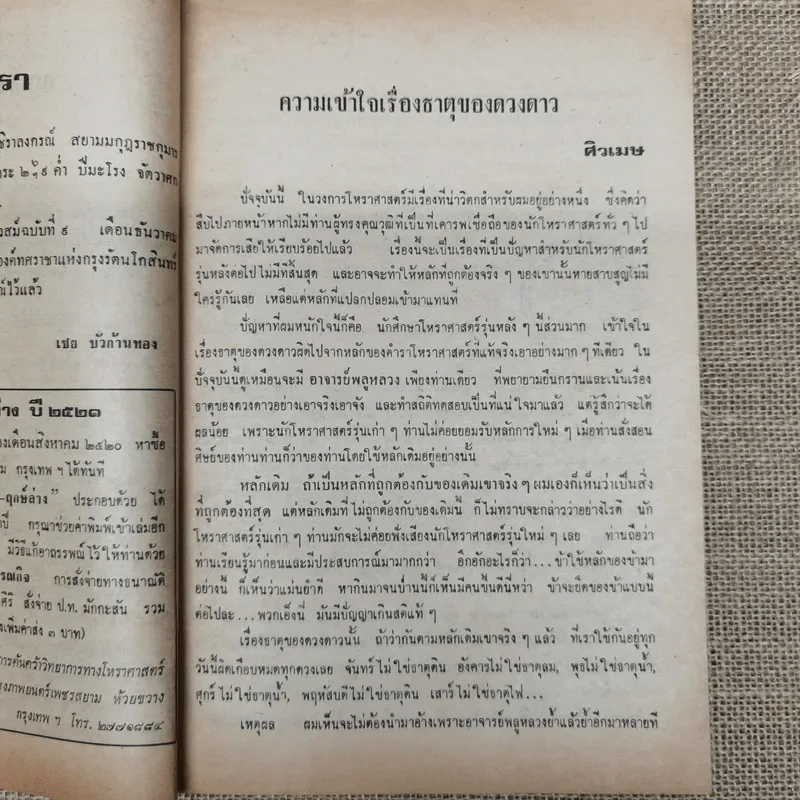 รา
ชิราลงกรณ์ สยามมกุฎราชกุมาร
ค่ำ ปีมะโรง จัตวาศก
วสมัฉบับที่ ๙ เดือนธันวาคม
องค์ทศราชาแห่งกรุงรัตนโกสินทร์
ณ์ไว้แล้ว
เชย บัวก้านทอง
าง ปี ๒๕๒๑
างเดือนสิงหาคม ๒๕๒๐ หาซื้อ
ม กรุงเทพ ฯ ได้ทันที
-ฤกษ์ล่าง” ประกอบด้วย ได้
ปี กรุณาช่วยค่าพิมพ์เข้าเล่มอีก
มีวิธีแก้อาถรรพณ์ไว้ให้ท่านด้วย
รณกิจ การสั่งจ่ายทางธนาณัติ
ศิริ สั่งจ่าย ป.ท. มักกะสัน รวม
งเพิ่มค่าส่ง ๓ บาท)
การค้นคว้าวิทยาการทางโหราศาสตร์
รงภาพยนตร์เพชรสยาม ห้วยขวาง
กรุงเทพ ฯ โทร. ๒๗๗๑๘๘๔
ความเข้าใจเรื่องธาตุของดวงดาว
ศิวเมษ
ปัจจุบันนี้ ในวงการโหราศาสตร์มีเรื่องที่น่าวิตกสำหรับผมอยู่อย่างหนึ่ง ซึ่งคิดว่า
สืบไปภายหน้าหากไม่มีท่านผู้ทรงคุณวุฒิที่เป็นที่เคารพเชื่อถือของนักโหราศาสตร์ทั่ว ๆ ไป
มาจัดการเสียให้เรียบร้อยไปแล้ว เรื่องนี้จะเป็นเรื่องที่เป็นปัญหาสำหรับนักโหราศาสตร์
รุ่นหลังต่อไปไม่มีที่สิ้นสุด และอาจจะทำให้หลักที่ถูกต้องจริง ๆ ของเขานั้นหายสาบสูญไม่มี
ใครรู้กันเลย เหลือแต่หลักที่แปลกปลอมเข้ามาแทนที่
ปัญหาที่ผมหนักใจนี้ก็คือ นักศึกษาโหราศาสตร์รุ่นหลัง ๆ นี้ส่วนมาก เข้าใจใน
เรื่องธาตุของดวงดาวผิดไปจากหลักของตำราโหราศาสตร์ที่แท้จริงเอาอย่างมาก ๆ ทีเดียว ใน
ปัจจุบันนี้ดูเหมือนจะมี อาจารย์พลูหลวง เพียงท่านเดียว ที่พยายามยืนกรานและเน้นเรื่อง
ธาตุของดวงดาวอย่างเอาจริงเอาจัง และทำสถิติทดสอบเป็นที่แน่ใจมาแล้ว แต่รู้สึกว่าจะได้
ผลน้อย เพราะนักโหราศาสตร์รุ่นเก่า ๆ ท่านไม่ค่อยยอมรับหลักการใหม่ ๆ เมื่อท่านสั่งสอน
ศิษย์ของท่านท่านก็ว่าของท่านโดยใช้หลักเดิมอยู่อย่างนั้น
หลักเดิม ถ้าเป็นหลักที่ถูกต้องกับของเดิมเขาจริง ๆ ผมเองก็เห็นว่าเป็นสิ่ง
ที่ถูกต้องที่สุด แต่หลักเดิมที่ไม่ถูกต้องกับของเดิมนี้ ก็ไม่ทราบจะกล่าวว่าอย่างไรดี นัก
โหราศาสตร์รุ่นเก่า ๆ ท่านมักจะไม่ค่อยฟังเสียงนักโหราศาสตร์รุ่นใหม่ ๆ เลย ท่านถือว่า
ท่านเรียนรู้มาก่อนและมีประสบการณ์มามากกว่า อีกอักอะไรก็ว่า...ข้าใช้หลักของข้ามา
อย่างนี้ ก็เห็นว่าแม่นยำดี หากินมาจนป่านนี้ก็เห็นมีคนขึ้นดีนี่หว่า ข้าจะยึดของข้าแบบนี้
ต่อไปละ...พวกเอ็งนี่ มันมีปัญญาเกินสติแท้ ๆ
เรื่องธาตุของดวงดาวนั้น ถ้าว่ากันตามหลักเดิมเขาจริง ๆ แล้ว ที่เราใช้กันอยู่ทุก
วันนี้ผิดเกือบหมดทุกดวงเลย จันทร์ไม่ใช่ธาตุดิน อังคารไม่ใช่ธาตุลม, พุธไม่ใช่ธาตุน้ำ,
ศุกร์ไม่ใช่ธาตุน้ำ, พฤหัสบดีไม่ใช่ธาตุดิน เสาร์ไม่ใช่ธาตุไฟ...
เหตุผล ผมเห็นจะไม่ต้องนำมาอ้างเพราะอาจารย์พลูหลวงย้ำแล้วย้ำอีกมาหลายที